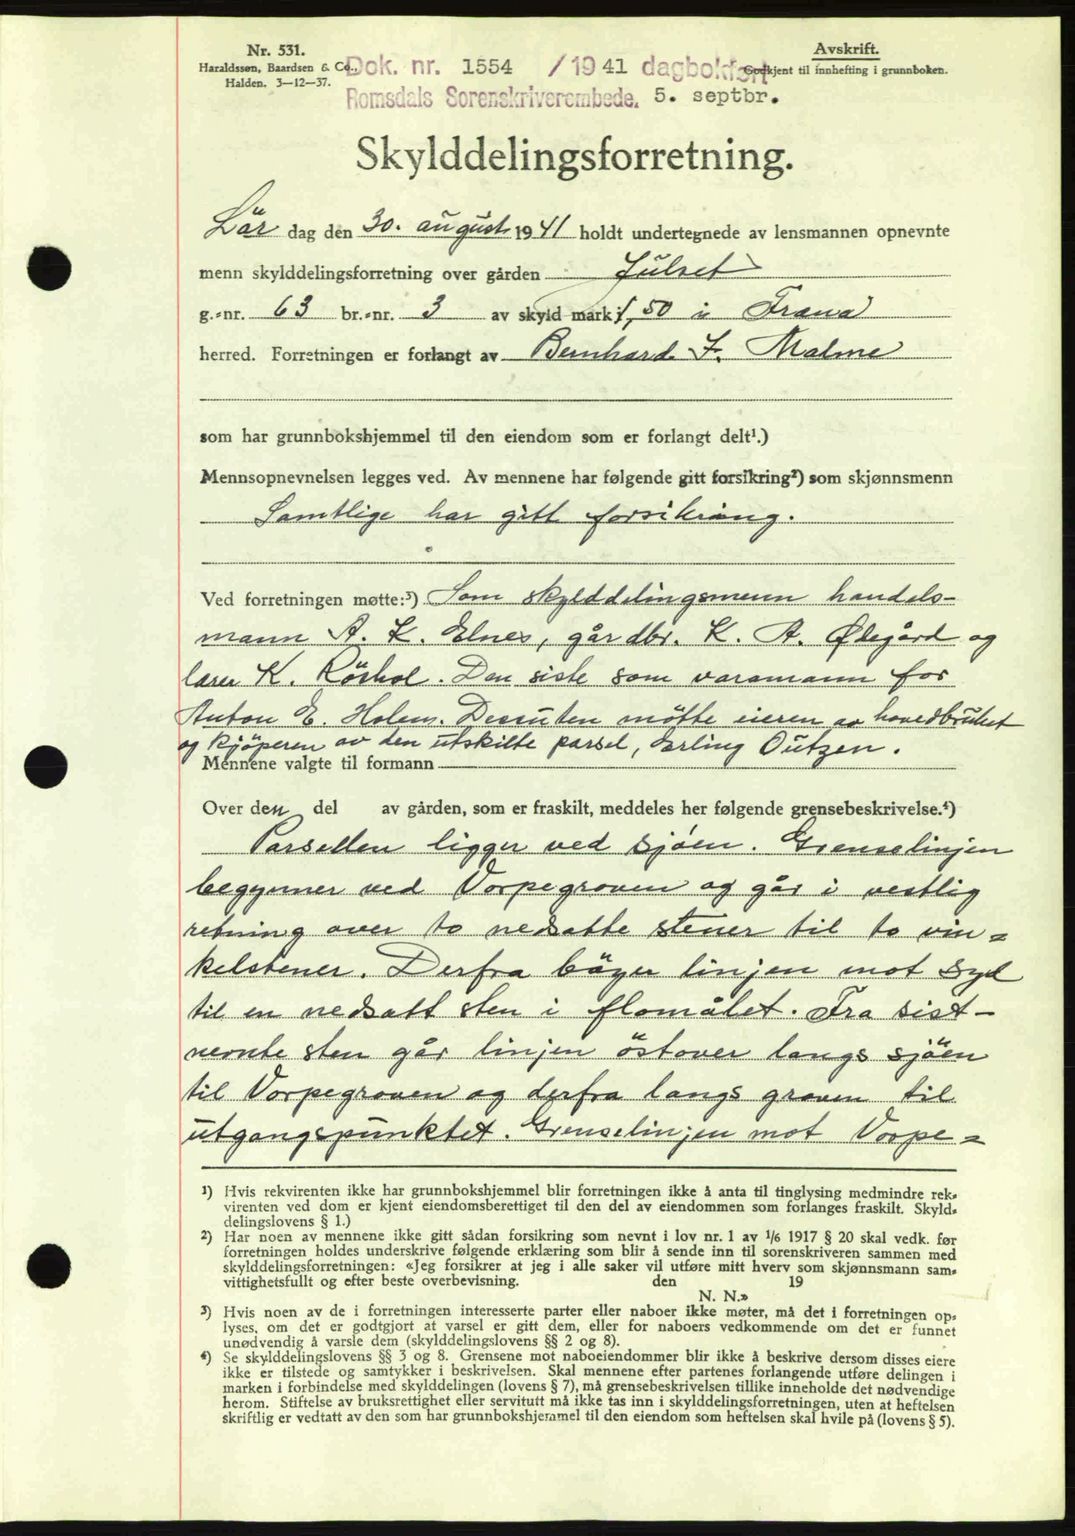 Nr. 531.
Haraldssøn, Baardsen & Co.,
Halden. 3—12—37.
Avskrift.
Godkjent til innhefting i grunnboken.
Dok. nr. 1554 /1941 dagbokført
Romsdals Sorenskriverembede. 5. septbr.
Skylddelingsforretning.
Lör dag den 30. august 1941 holdt undertegnede av lensmannen opnevnte
menn skylddelingsforretning over gården Julset
g.-nr. 63 br.-nr. 3 av skyld mark 1,50 i Fræna
herred. Forretningen er forlangt av Bernhard J. Malme
som har grunnbokshjemmel til den eiendom som er forlangt delt¹.)
Mennsopnevnelsen legges ved. Av mennene har følgende gitt forsikring²) som skjønnsmenn
Samtlige har gitt forsikring.
Ved forretningen møtte:³) Som skylddelingsmenn handels-
mann A. K. Elnes, gårdbr. K. A. Ødegård og
lærer K. Rörhol. Den siste som varamann for
Anton E. Holem. Dessuten møtte eieren av hovedbruket
og kjöperen av den utskilte parsel, Erling Outzen.
Mennene valgte til formann
Over den del av gården, som er fraskilt, meddeles her følgende grensebeskrivelse.⁴)
Parsellen ligger ved sjöen. Grenselinjen
begynner ved Vorpegroven og går i vestlig
retning over to nedsatte stener til to vin=
kelstener. Derfra böyer linjen mot syd
til en nedsatt sten i flomålet. Fra sist-
nevnte sten går linjen östover langs sjöen
til Vorpegroven og derfra langs groven til
utgangspunktet. Grenselinjen mot Vorpe=
¹) Hvis rekvirenten ikke har grunnbokshjemmel blir forretningen ikke å anta til tinglysing medmindre rek-
virenten ved dom er kjent eiendomsberettiget til den del av eiendommen som forlanges fraskilt. Skyld-
delingslovens § 1.)
²) Har noen av mennene ikke gitt sådan forsikring som nevnt i lov nr. 1 av 1/6 1917 § 20 skal vedk. før
forretningen holdes underskrive følgende erklæring som blir å sende inn til sorenskriveren sammen med
skylddelingsforretningen: «Jeg forsikrer at jeg i alle saker vil utføre mitt hverv som skjønnsmann sam-
vittighetsfullt og efter beste overbevisning. den 19
N. N.»
³) Hvis noen av de i forretningen interesserte parter eller naboer ikke møter, må det i forretningen op-
lyses, om det er godtgjort at varsel er gitt dem, eller for naboers vedkommende om det er funnet
unødvendig å varsle dem (skylddelingslovens §§ 2 og 8).
⁴) Se skylddelingslovens §§ 3 og 8. Grensene mot naboeiendommer blir ikke å beskrive dersom disses eiere
ikke er tilstede og samtykker i beskrivelsen. Skal mennene efter partenes forlangende utføre delingen i
marken i forbindelse med skylddelingen (lovens § 7), må grensebeskrivelsen tillike inneholde det nødvendige
herom. Stiftelse av bruksrettighet eller servitutt må ikke tas inn i skylddelingsforretningen, uten at heftelsen
skriftlig er vedtatt av den som har grunnbokshjemmel til den eiendom som heftelsen skal hvile på (lovens § 5).